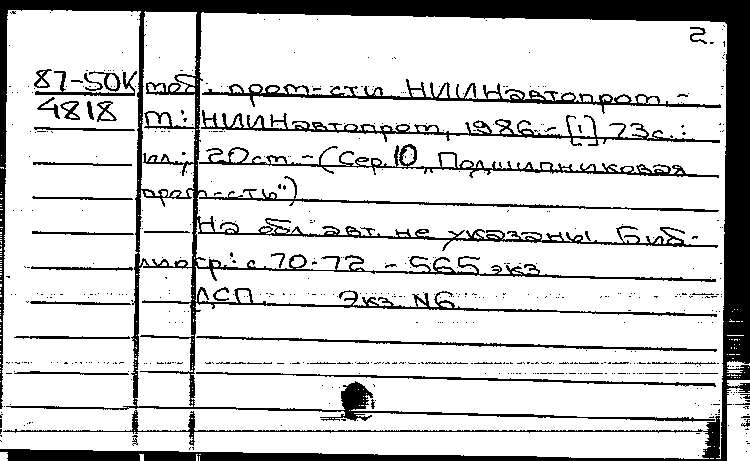 2.
87-50К моб. пром-сти НИИНавтопром. -
4818 М.: НИИНавтопром, 1986. - [1], 73 с.:
ил.; 20 см. - (Сер. 10 "Подшипниковая
пром-сть")
На обл. авт. не указаны. Биб-
лиогр.: с. 70-72. - 565 экз.
ДСП. Экз. N6